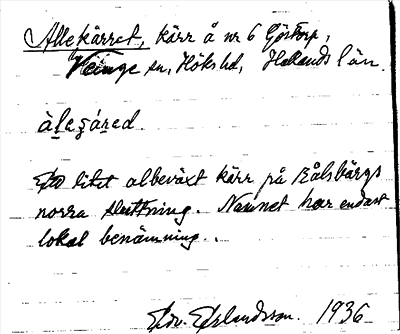 Allekärret, kärr å nr 6 Göstorp,
Veinge sn, Höks hd, Hallands län.
àlesáred
Ett litet albeväxt kärr på Bålsbärgs
norra sluttning. Namnet har endast
lokal benämning.
Edv. Erlandsson. 1936